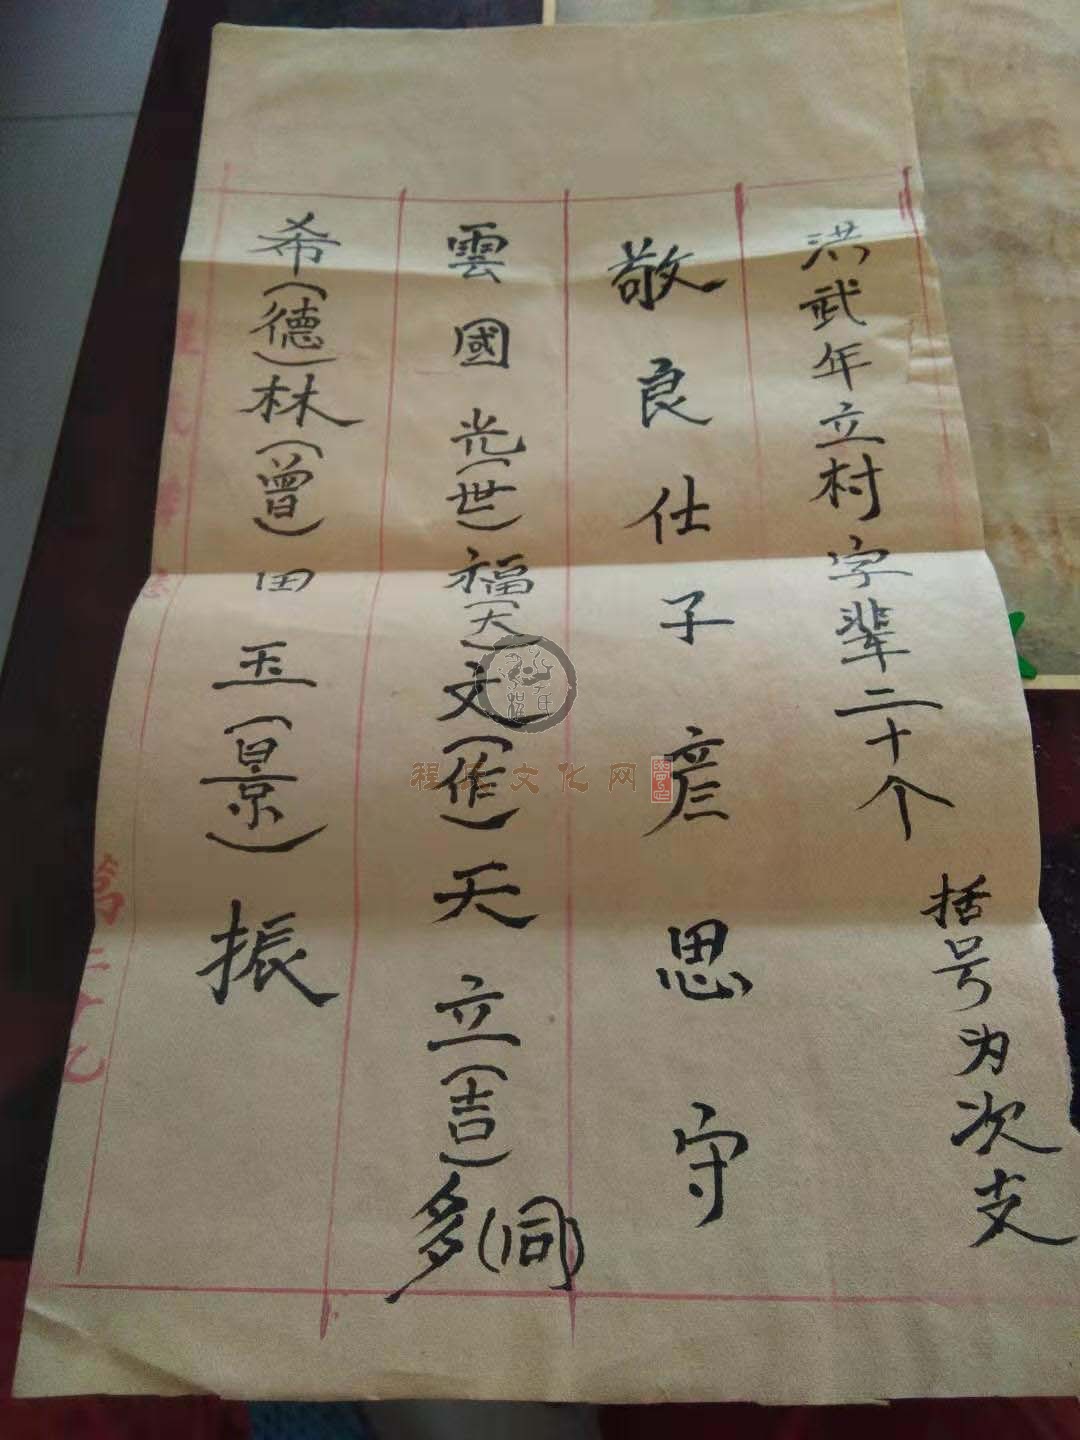 洪武年立村字辈二十个
括号为次支
敬良仕子彦思守
雲國光(世)福(大)文(作)天立(吉)多(同)
希(德)林(曾)田玉(景)振
程氏文化网